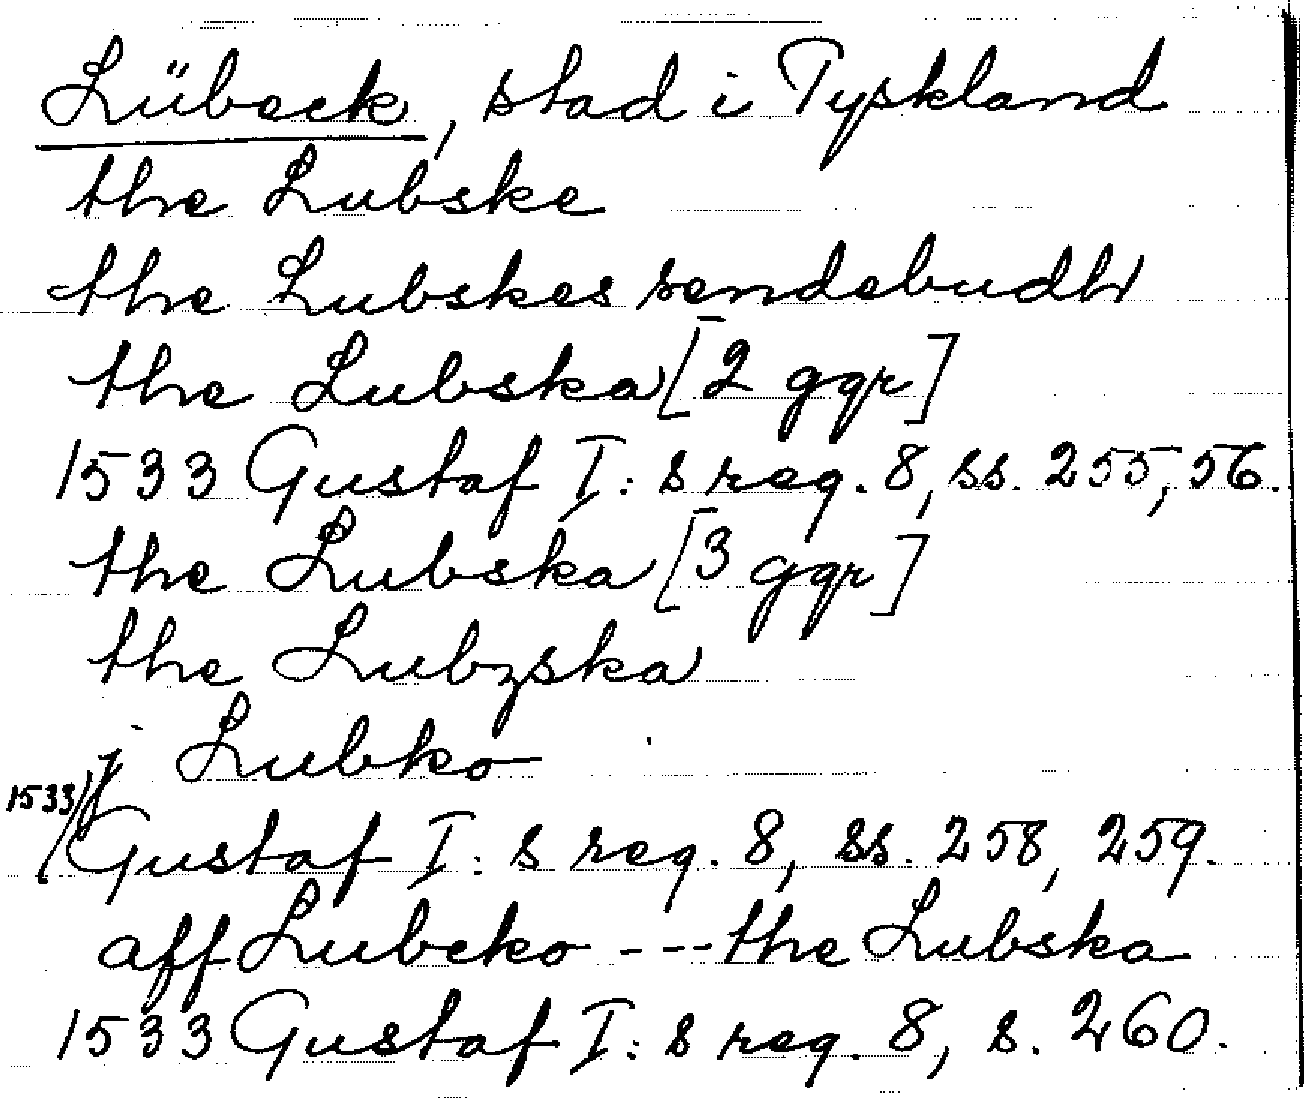 Lübeck, stad i Tyskland
the Lubske
the Lubskes sendebudh
the Lubska [2 ggr]
1533 Gustaf I:s reg. 8, ss. 255, 56.
the Lubska [3 ggr]
the Lubzska
j Lubko
1533 Gustaf I:s reg. 8, ss. 258, 259.
aff Lubcko --- the Lubska
1533 Gustaf I:s reg. 8, s. 260.